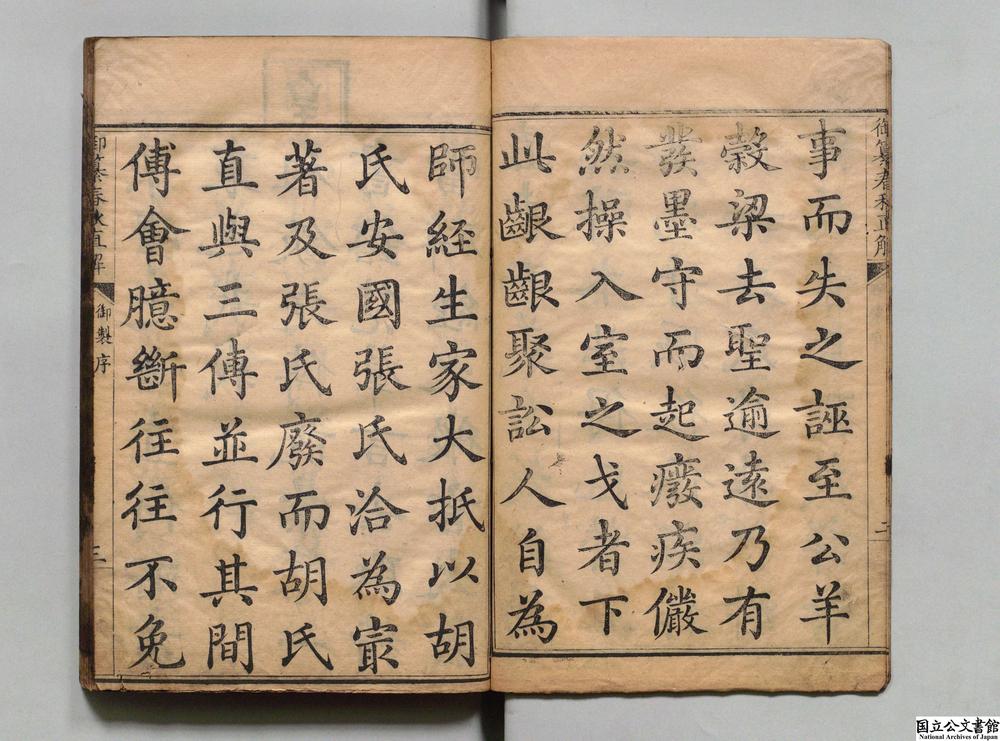 御纂春秋直解
二
事而失之誣至公羊
穀梁去聖逾遠乃有
發墨守而起癈疾儼
然操入室之戈者下
此齦齦聚訟人自為
師經生家大抵以胡
氏安國張氏洽為㝡
著及張氏廢而胡氏
直與三傳並行其間
傅會臆斷往往不免
御纂春秋直解
御製序
三
国立公文書館
National Archives of Japan